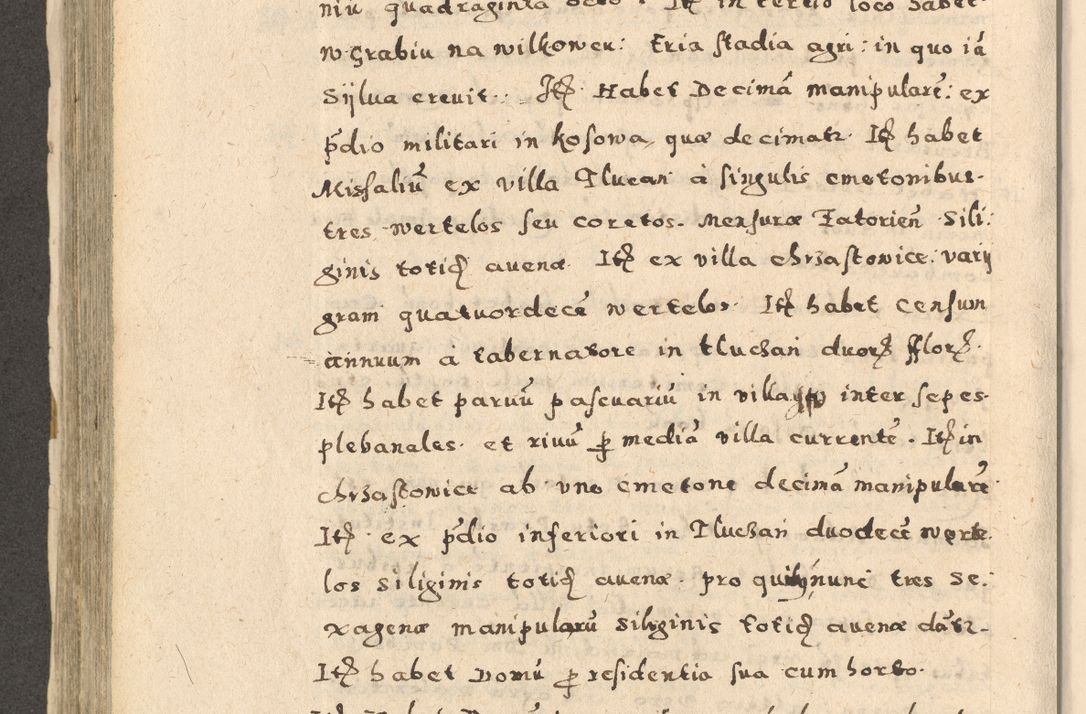 niu quadraginta octo. Itē in tertio loco habet
w Grabiu na wilkoweu: tria stadia agri: in quo iā
Sijlua creuit. Itē Habet Decimā manipularē: ex
p̄dio militari in kosowa, quæ decimatr. Itē habet
Missaliū ex villa Tlucan à singulis cmetonibus.
tres wertelos seu coretos. Mensuræ Zatorien̄ Sili:
ginis totid̄ auenæ. Itē ex villa chrzastowice: varij
gram quatuordecē wertelos. Itē habet Censum
annuum a tabernatore in tluczan duorū fflorē.
Itē habet paruū pascuariū in villa inter sepes
plebanales. et riuū ꝑ mediā villa currentē. Itē in
chrzastowice ab vno cmetone decimā manipularē
Itē ex p̄dio inferiori in Tluczan duodecē werte
los Siliginis totid̄ auenæ. pro quibȝ nunc tres Se:
xagenæ manipularū Siliginis totid̄ auenæ dātr.
Itē habet Domū ꝑ residentia sua cum horto.